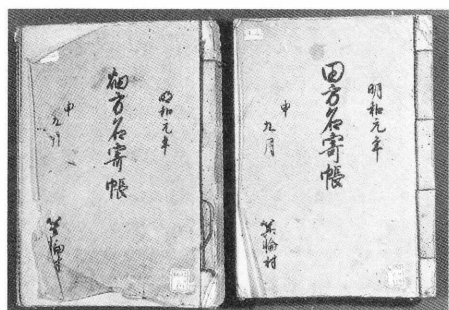 明和元年
田方名寄帳
申
九月
箕輪村
明和元年
畑方名寄帳
申
九月
箕輪村